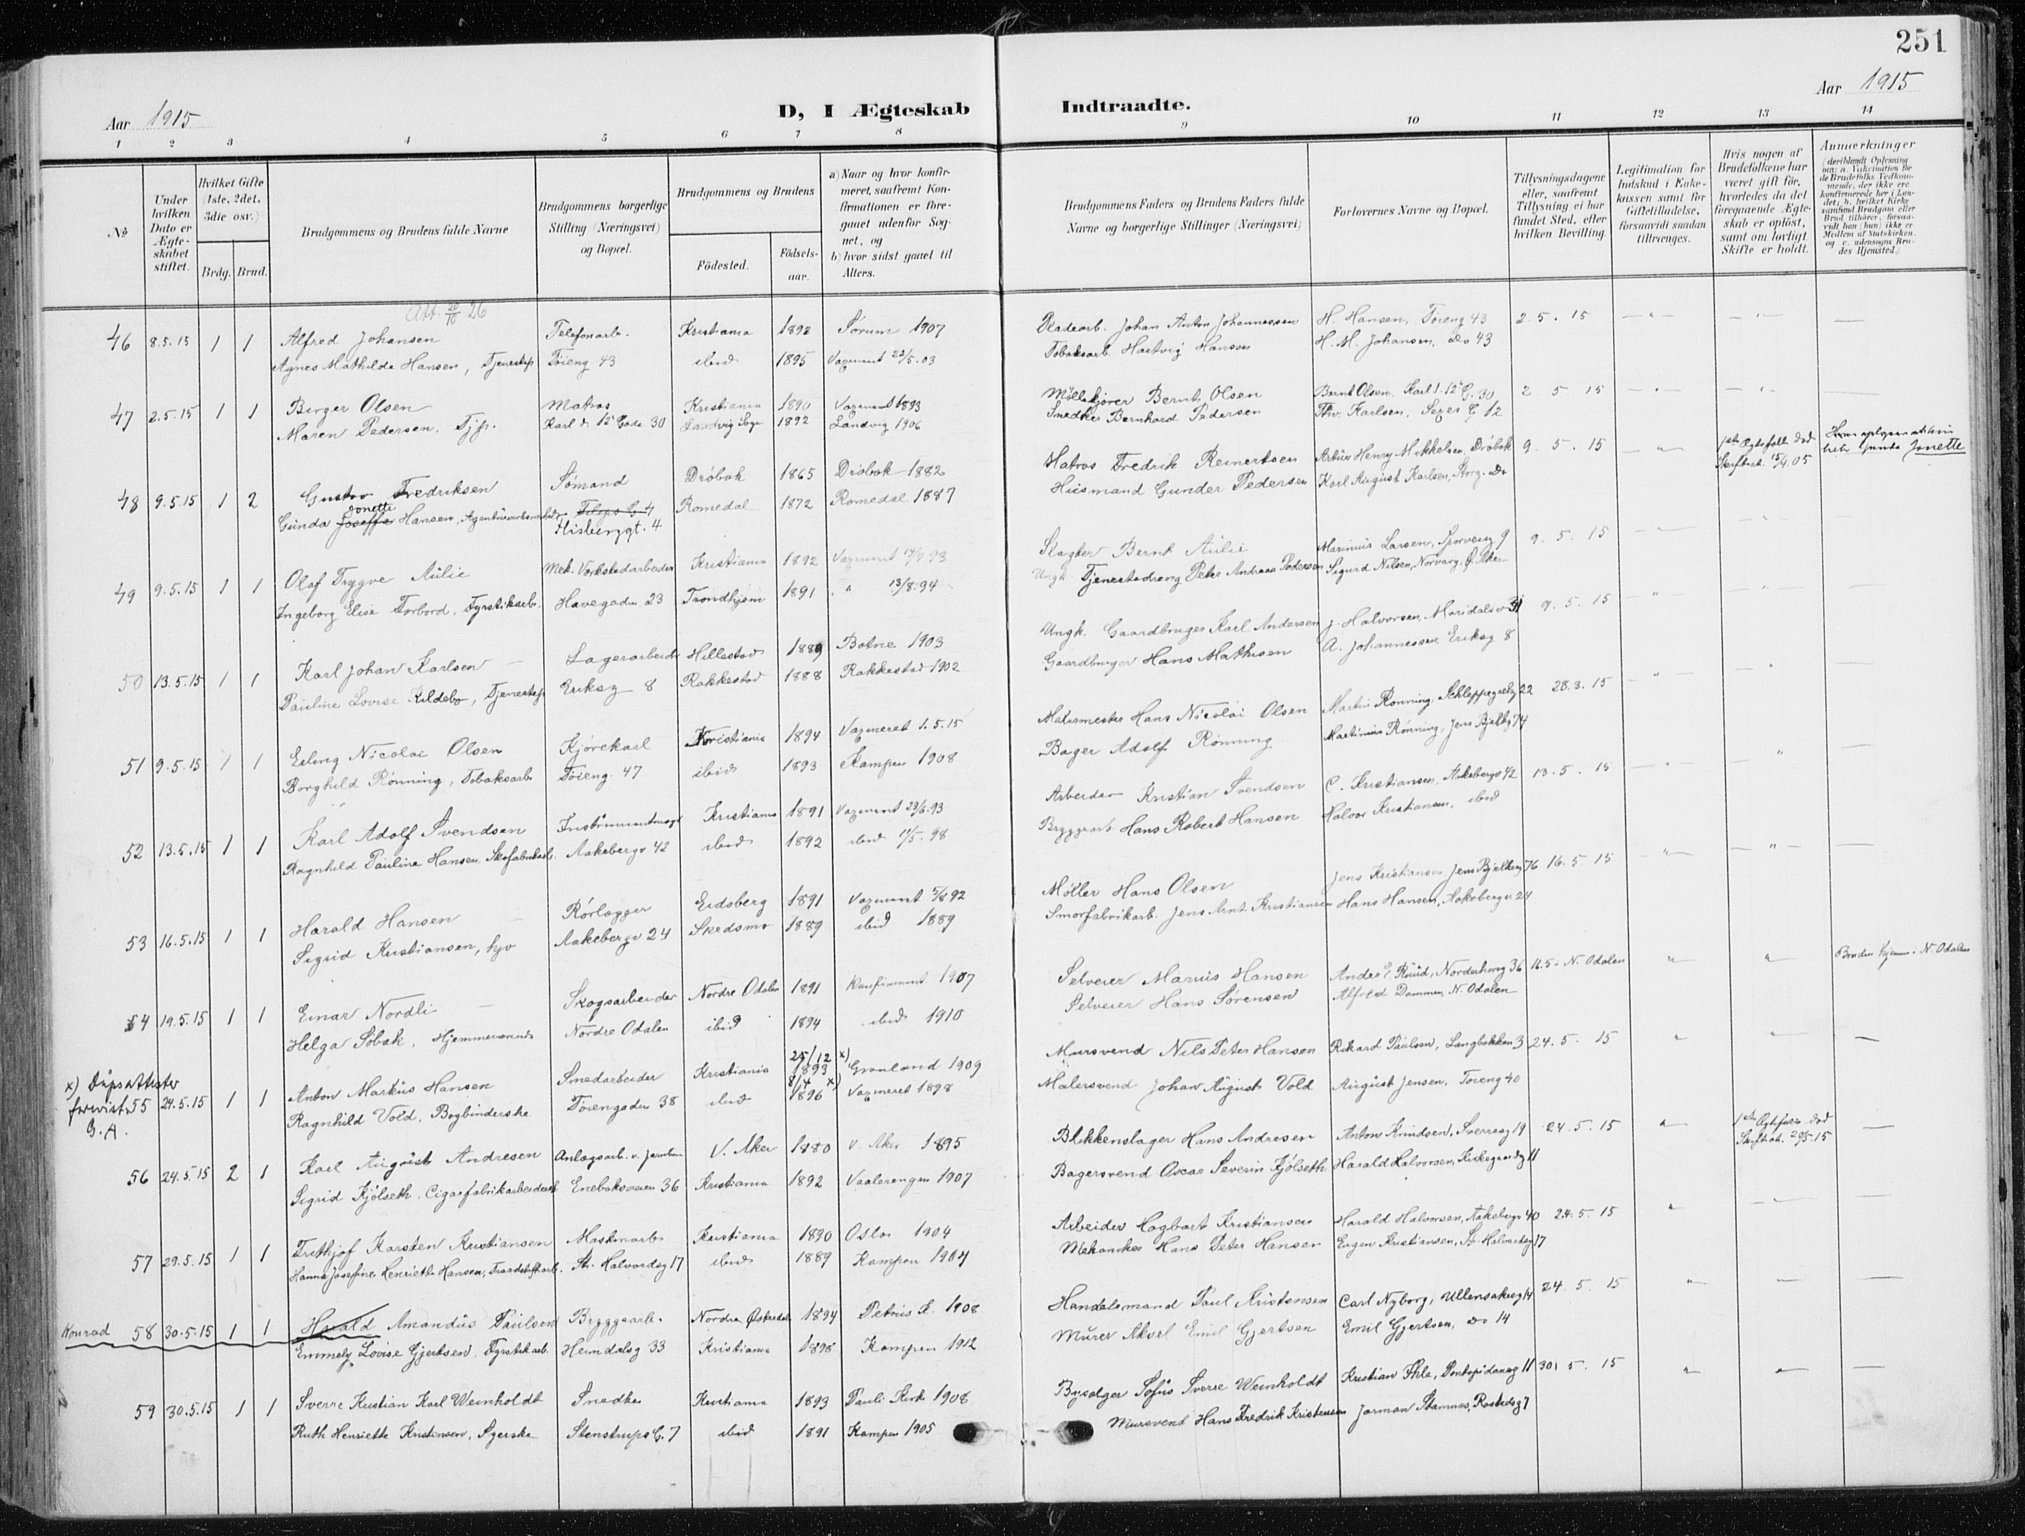 251
Aar 1915
D, I Ægteskab
Indtraadte.
Aar 1915
1 2 3 4 5 6 7 8 9 10 11 12 13 14
No.
Under hvilken Dato er Ægteskabet stiftet.
Hvilket Gifte (1ste, 2det, 3die osv.)
Brdg. Brud.
Brudgommens og Brudens fulde Navne
Brudgommens borgerlige Stilling (Næringsvei) og Bopæl.
Brudgommens og Brudens
Fødested.
Fødselsaar.
a) Naar og hvor konfirmeret, saafremt Konfirmationen er foregaaet udenfor Sognet, og
b) hvor sidst gaaet til Alters.
Brudgommens Faders og Brudens Faders fulde Navne og borgerlige Stillinger (Næringsvei)
Forlovernes Navne og Bopæl.
Tillysningsdagene eller, saafremt Tillysning ei har fundet Sted, efter hvilken Bevilling.
Legitimation for Indskud i Enkekassen samt for Giftetilladelse, forsaavidt saadan tiltrænges.
Hvis nogen af Brudefolkene har været gift før, hvorledes da det foregaaende Ægteskab er opløst, samt om lovligt Skifte er holdt.
Anmærkninger (deriblandt Oplysning om: a. Vaccination for de Brudefolks Vedkommende, der ikke ere konfirmerede her i Landet; b. hvilket Kirkesamfund Brudgom eller Brud tilhører, forsaavidt han (hun) ikke er Medlem af Statskirken, og c. udensogns Brudes Hjemsted.)
Att. 20/10 26
46 8.5.15 1 1 Alfred Johansen Telefonarb. Kristiania 1892 Sørum 1907 Johan Anton Johannessen H. Hansen, Tøieng 43 2.5.15
Agnes Mathilde Hansen, Tjenestep. Tøieng 43 ibid 1895 Vaxineret 22/5.03 Tobaksarb. Hartvig Hansen H. M. Johansen, Do 43
47 2.5.15 1 1 Birger Olsen Matros Kristiania 1890 Vaxineret 1893 Møllekjører Bernt Olsen Bernt Olsen, Karl d. 12' G. 30 2.5.15
Maren Pedersen, Tjp. Karl d. 12' Gade 30 Landvig Sogn 1892 Landvig 1906 Snedker Bernhard Pedersen Thv. Karlsen, G. 12
48 9.5.15 1 2 Gustav Fredriksen Sømand Drøbak 1865 Drøbak 1882 Matros Fredrik Reinertsen Artur Henry Mikkelsen, Drøbak 9.5.15 1ste Ægtefælle død
Gunda Josefse Jonette Hansen, Hisbergqt. 4 Romedal 1872 Romedal 1887 Husmand Gunder Pedersen Karl August Karlsen, Storg. Do Skifteat. 15/4.05 Gunda Jonette
49 9.5.15 1 1 Olaf Trygve Aulie Mek. Verkstedarbeider Kristiania 1892 Vaxineret 93 Slagter Bernt Aulie Marinius Larsen, 9 9.5.15
Ingeborg Elise Torbord, Fyrstikarb. Havegaden 23 Trondhjem 1891 " 13/8.94 Ungk. Tjenestedreng Peter Andreas Pedersen Sigurd Nilsen,
50 13.5.15 1 1 Karl Johan Karlsen Lagerarbeider Hillestad 1889 Botne 1903 Ungk. Gaardbruger Karl Andersen J. Halvorsen, Maridalsv 31 9.5.15
Pauline Lovise Kildebo, Tjenestep. Eriksg 8 Rakkestad 1888 Rakkestad 1902 Gaardbruger Hans Mathisen A. Johannessen, Eriksg 8
51 9.5.15 1 1 Erling Nicolai Olsen Kjørekarl Kristiania 1894 Vaxineret 1.5.15 Malermester Hans Nicolai Olsen Martin Rønning, Schleppegrelsg 22 28.3.15
Borghild Rønning, Tobaksarb Tøieng. 47 ibid 1893 Kampen 1908 Bager Adolf Rønning Martinius Rønning, Jens Bjelkg 74
52 13.5.15 1 1 Karl Adolf Svendsen Instrumentmag Kristiania 1891 Vaxineret 23/6.93 Arbeider Kristian Svendsen C. Kristiansen, Aakebergv 42 13.5.15
Ragnhild Pauline Hansen, Skofabrikarb. Aakebergv 42 ibid 1892 ibid 98 Bryggearb. Hans Robert Hansen Halvor Kristiansen, ibid
53 16.5.15 1 1 Harald Hansen Rørlægger Eidsberg 1891 Vaxineret 5/8 92 Møller Hans Olsen Jens Kristiansen, Jens Bjelkesg 76 16.5.15
Sigrid Kristiansen, hjv Aakebergv 24 Skedsmo 1889 ibid 1889 Smørfabrikarb. Jens Arnt Kristiansen Hans Hansen, Aakebergv 24
54 19.5.15 1 1 Einar Nordli Skogsarbeider Nordre Odalen 1891 Konfirmeret 1907 Selveier Marius Hansen Andr. E. Ruud, Norderhovg 36 16.5 i N. Odalen Bruden hjemme i N. Odalen
Helga Søbak, Hjemmeværende Nordre Odalen ibid 1894 ibid 1910 Selveier Hans Sørensen Alfred Dammen, N. Odalen
x) Daapsattester forevist G.A.
55 24.5.15 1 1 Anton Markus Hansen Smedarbeider Kristiania 25/12 1893 x) Grønland 1909 Mursvend Nils Peter Hansen Rikard Paulsen, Langbakken 3 24.5.15
Ragnhild Vold, Bogbinderske Tøiengaden 38 ibid 8/4 1896 x) Vaxineret 1898 Malersvend Johan August Vold August Jensen, Tøieng 40
56 24.5.15 2 1 Karl August Andresen Anlægsarb. v. Jernban V. Aker 1880 V. Aker 1895 Blikkenslager Hans Andresen Anton Knudsen, Sverresg 19 24.5.15 1ste Ægtefælle død
Sigrid Kjølseth, Cigarfabrikarbeiderske Enebakveien 36 Kristiania 1892 Vaalerengen 1907 Bagersvend Oscar Severin Kjølseth Harald Halvorsen, Kirkegaardsg 11 Skifteat. 29.5.15
57 29.5.15 1 1 Frithjof Karsten Kristiansen Maskinarb Kristiania 1890 Oslo 1904 Arbeider Hagbart Kristiansen Harald Halvorsen, Aakebergv 40 24.5.15
Hanna Josefine Henriette Hansen, Traadstiftarb. St. Halvordsg 17 ibid 1889 Kampen 1904 Mekaniker Hans Peter Hansen Eugen Kristiansen, St. Halvordsg 17
Konrad 58 30.5.15 1 1 Harald Amandus Paulsen Bryggearb. Nordre 1894 Petrus K. 1908 Handelsmand Paul Kristensen Carl Nyborg, Ullensakerg 14 24.5.15
Emmely Lovise Gjertsen, Fyrstikarb Heimdalsg 33 Kristiania 1895 Kampen 1912 Murer Aksel Emil Gjertsen Emil Gjertsen, Do 14
59 30.5.15 1 1 Sverre Kristian Karl Weinholdt Snedker Kristiania 1893 Pauli Kirk 1908 Sofus Sverre Weinholdt Kristian Ihle, 11 30.5.15
Ruth Henriette Kristensen, Syerske Stenstrups G. 7 ibid 1891 Kampen 1905 Mursvend Hans Fredrik Kristensen Jorman Stamnes, Rostedsg 7